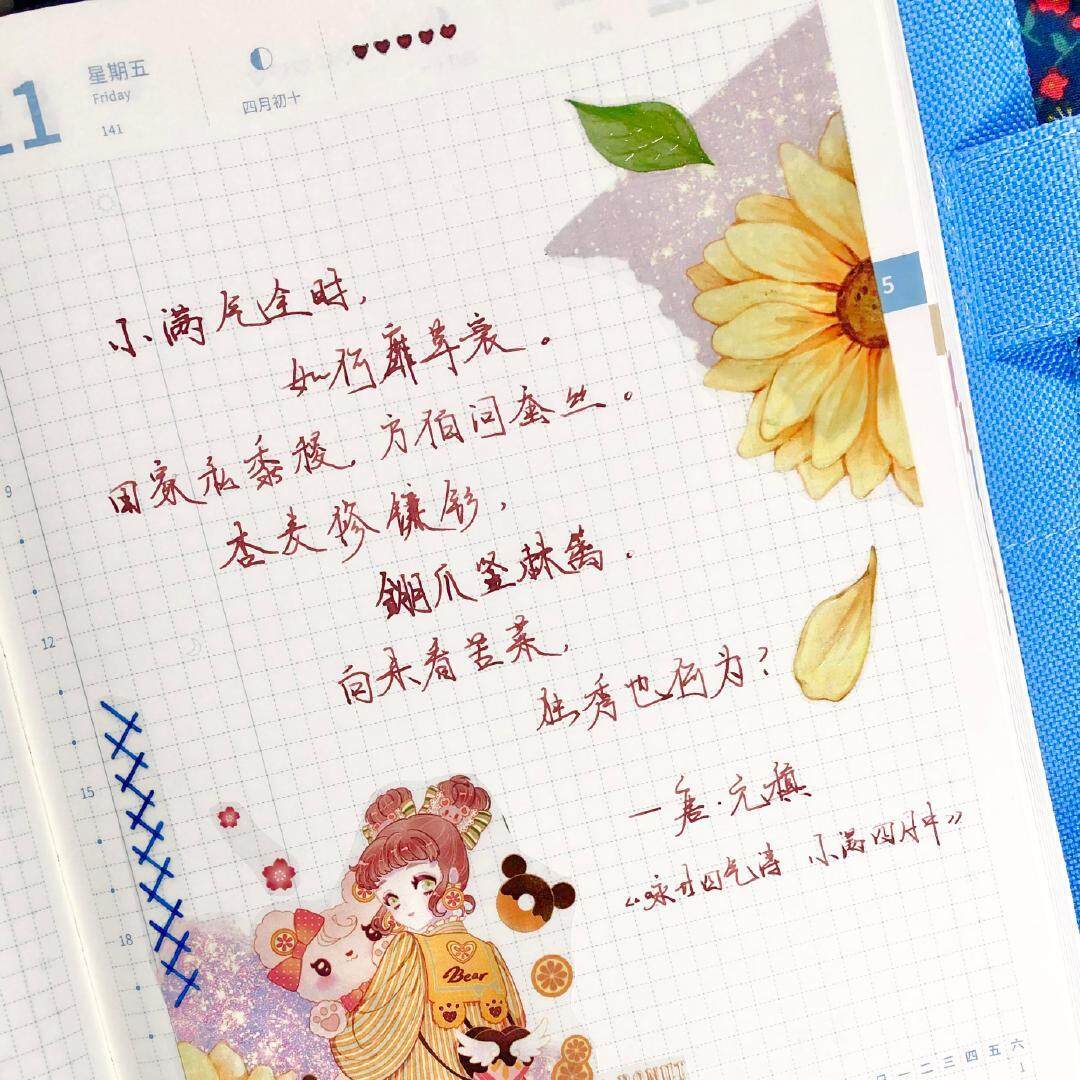 21
星期五
Friday
141
四月初十
小满气全时,
如何靡草衰。
5
田家私黍稷,方伯问蚕丝。
9
杏麦修镰钐,
錋爪竖棘篱.
12
向来看苦菜,
独秀也何为?
15
—唐·元稹
《咏廿四气诗 小满四月中》
18
Bear
DONUT
一 二 三 四 五 六
1